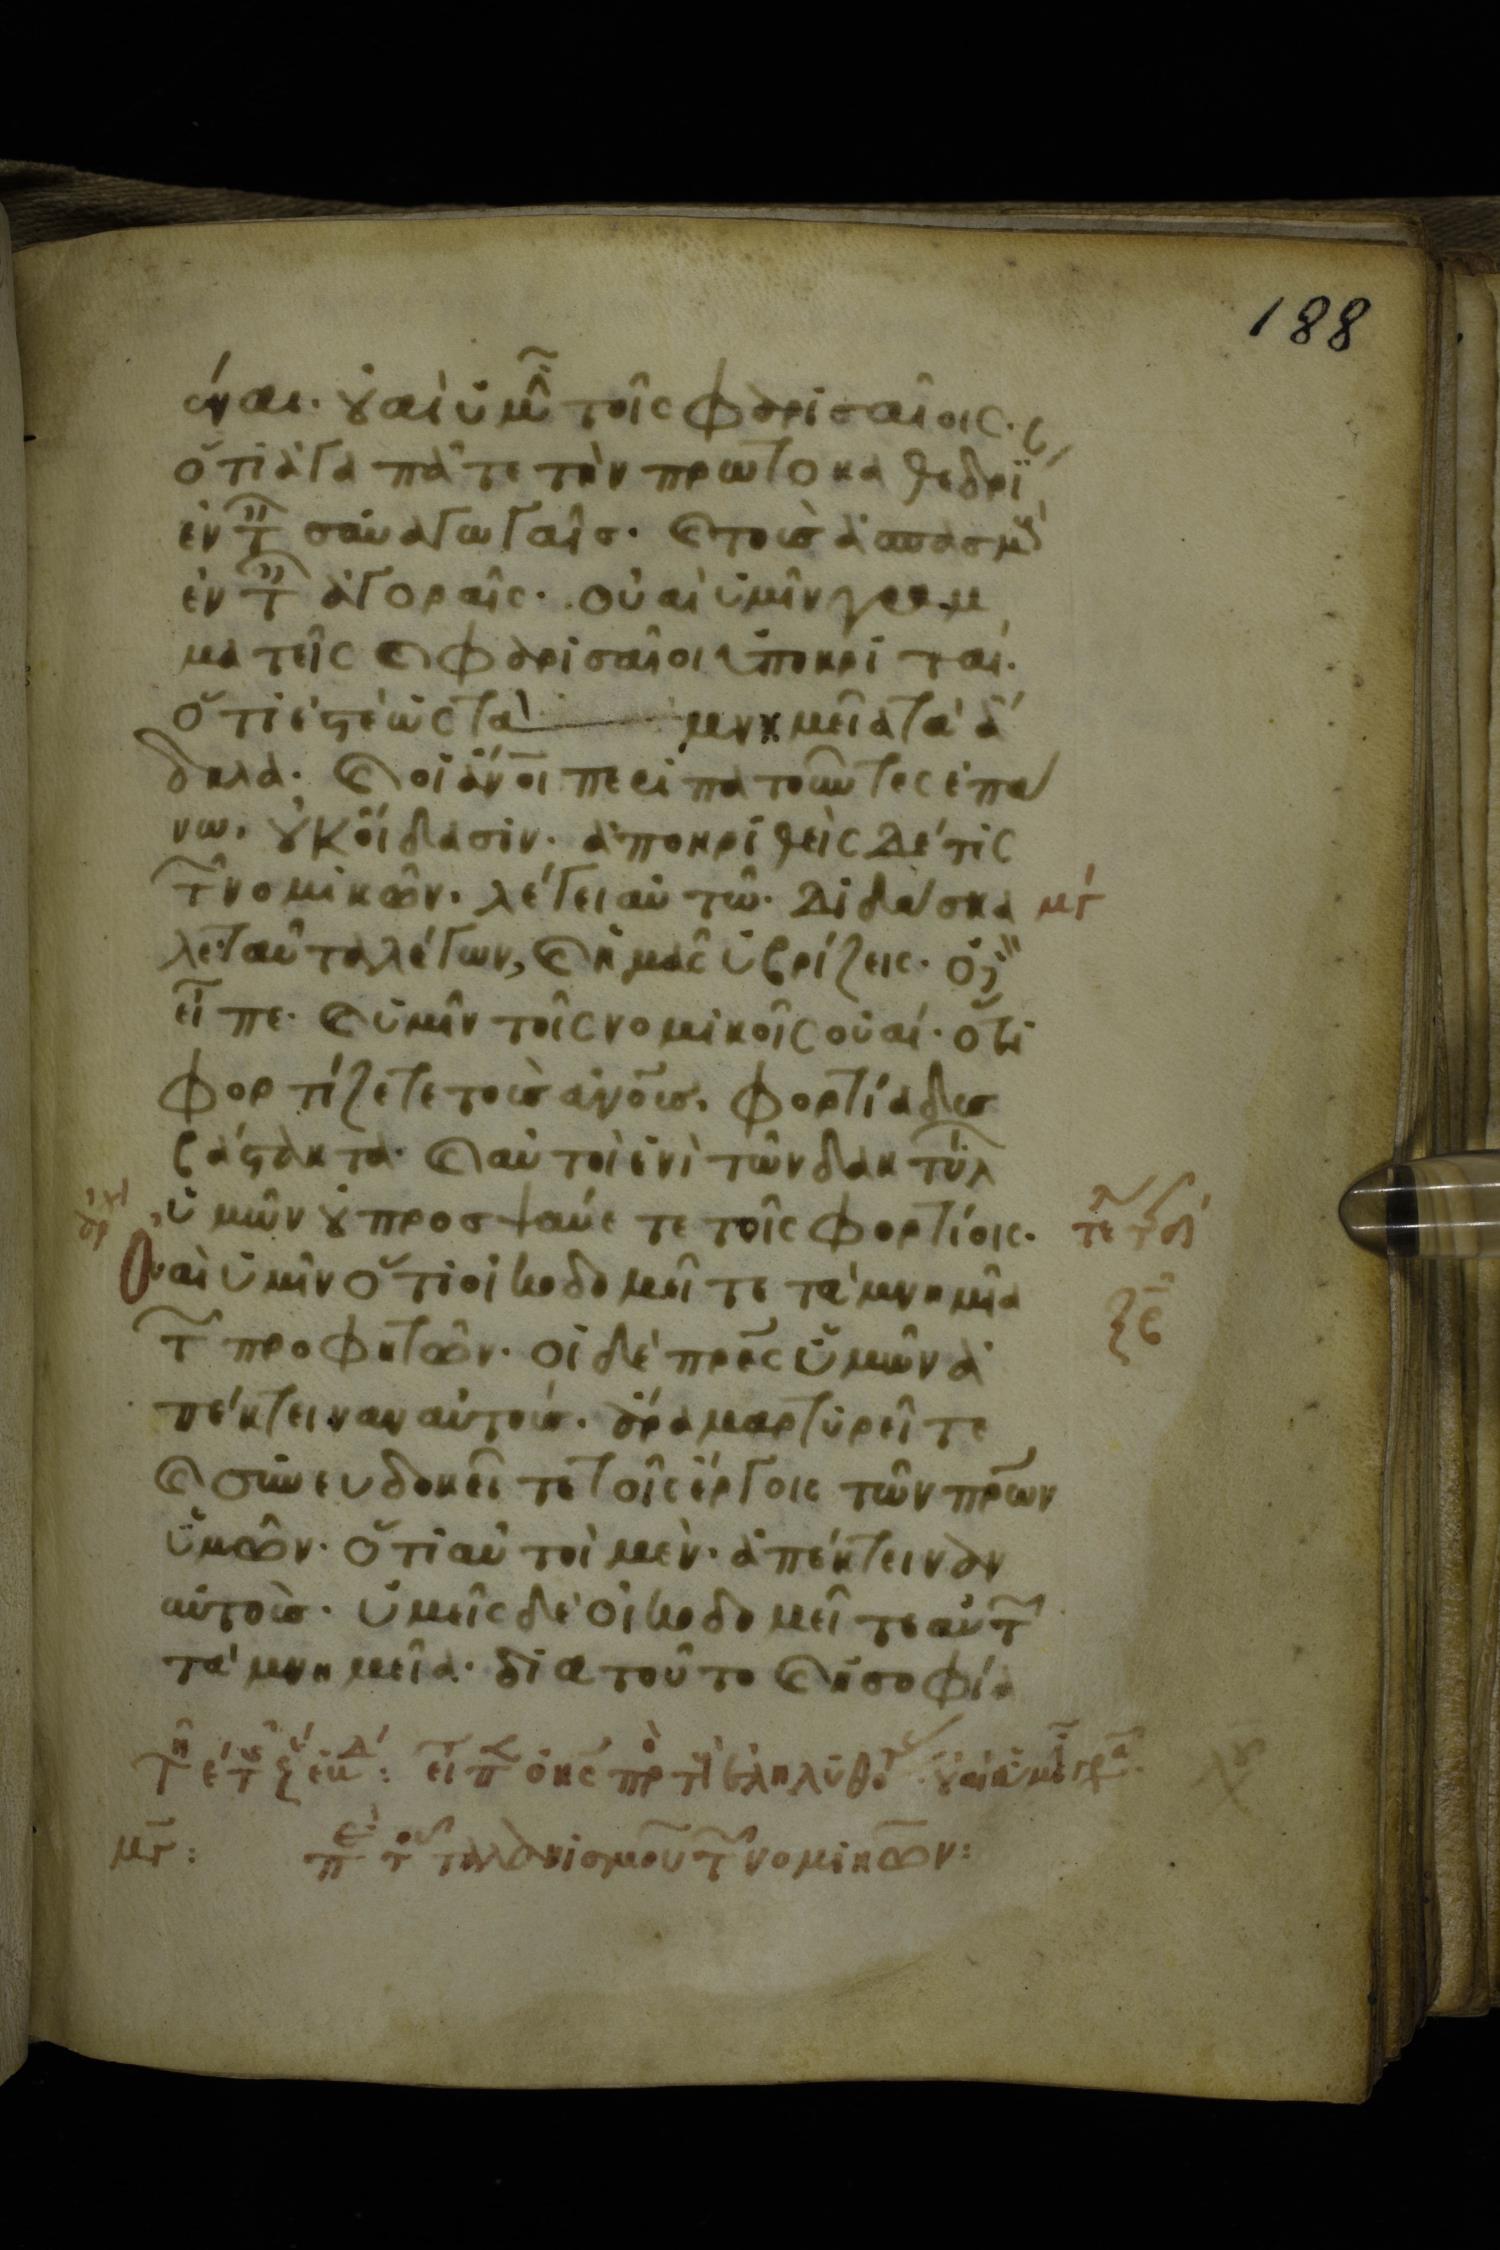 188
ἀφιέναι· οὐαὶ ὑμῖν τοῖς φαρισαίοις·
ὅτι ἀγαπᾶτε τὴν πρωτοκαθεδρί
ἐν τ συναγωγαῖς· καὶ τοὺς ἀσπασμοὺ
ἐν τ ἀγοραῖς· οὐαὶ ὑμῖν γραμ
ματεῖς καὶ φαρισαῖοι ὑποκριταί·
ὅτι ἐστὲ ὡς τὰ μνημεῖα τὰ ἄ
δηλα· καὶ οἱ ἄνοι περιπατοῦντες ἐπά
νω, οὐκ οἴδασιν· ἀποκριθεὶς δέ τις
τ νομικῶν· λέγει αὐτῷ· διδάσκα μγ
λε ταῦτα λέγων, καὶ ἡμᾶς ὑβρίζεις· ὁ δ
εἶπε· καὶ ὑμῖν τοῖς νομικοῖς οὐαί· ὅτι
φορτίζετε τοὺς ἀνους, φορτία δυσ
βάστακτα· καὶ αὐτοὶ ἑνὶ τῶν δακτύλ
ὑμῶν οὐ προσψαύετε τοῖς φορτίοις·
Οὐαὶ ὑμῖν ὅτι οἰκοδομεῖτε τὰ μνημῖα
τ προφητῶν· οἱ δὲ πρες ὑμῶν ἀ
πέκτειναν αὐτούς· ἄρα μαρτυρεῖτε
καὶ συνευδοκεῖτε τοῖς ἔργοις τῶν πρων
ὑμῶν· ὅτι αὐτοὶ μὲν· ἀπέκτειναν
αὐτοὺς· ὑμεῖς δὲ οἰκοδομεῖτε αὐτ
τὰ μνημεῖα· διατοῦτο καὶ ἡ σοφία
μγ: π τ ταλανισμοῦ τ νομικῶν: